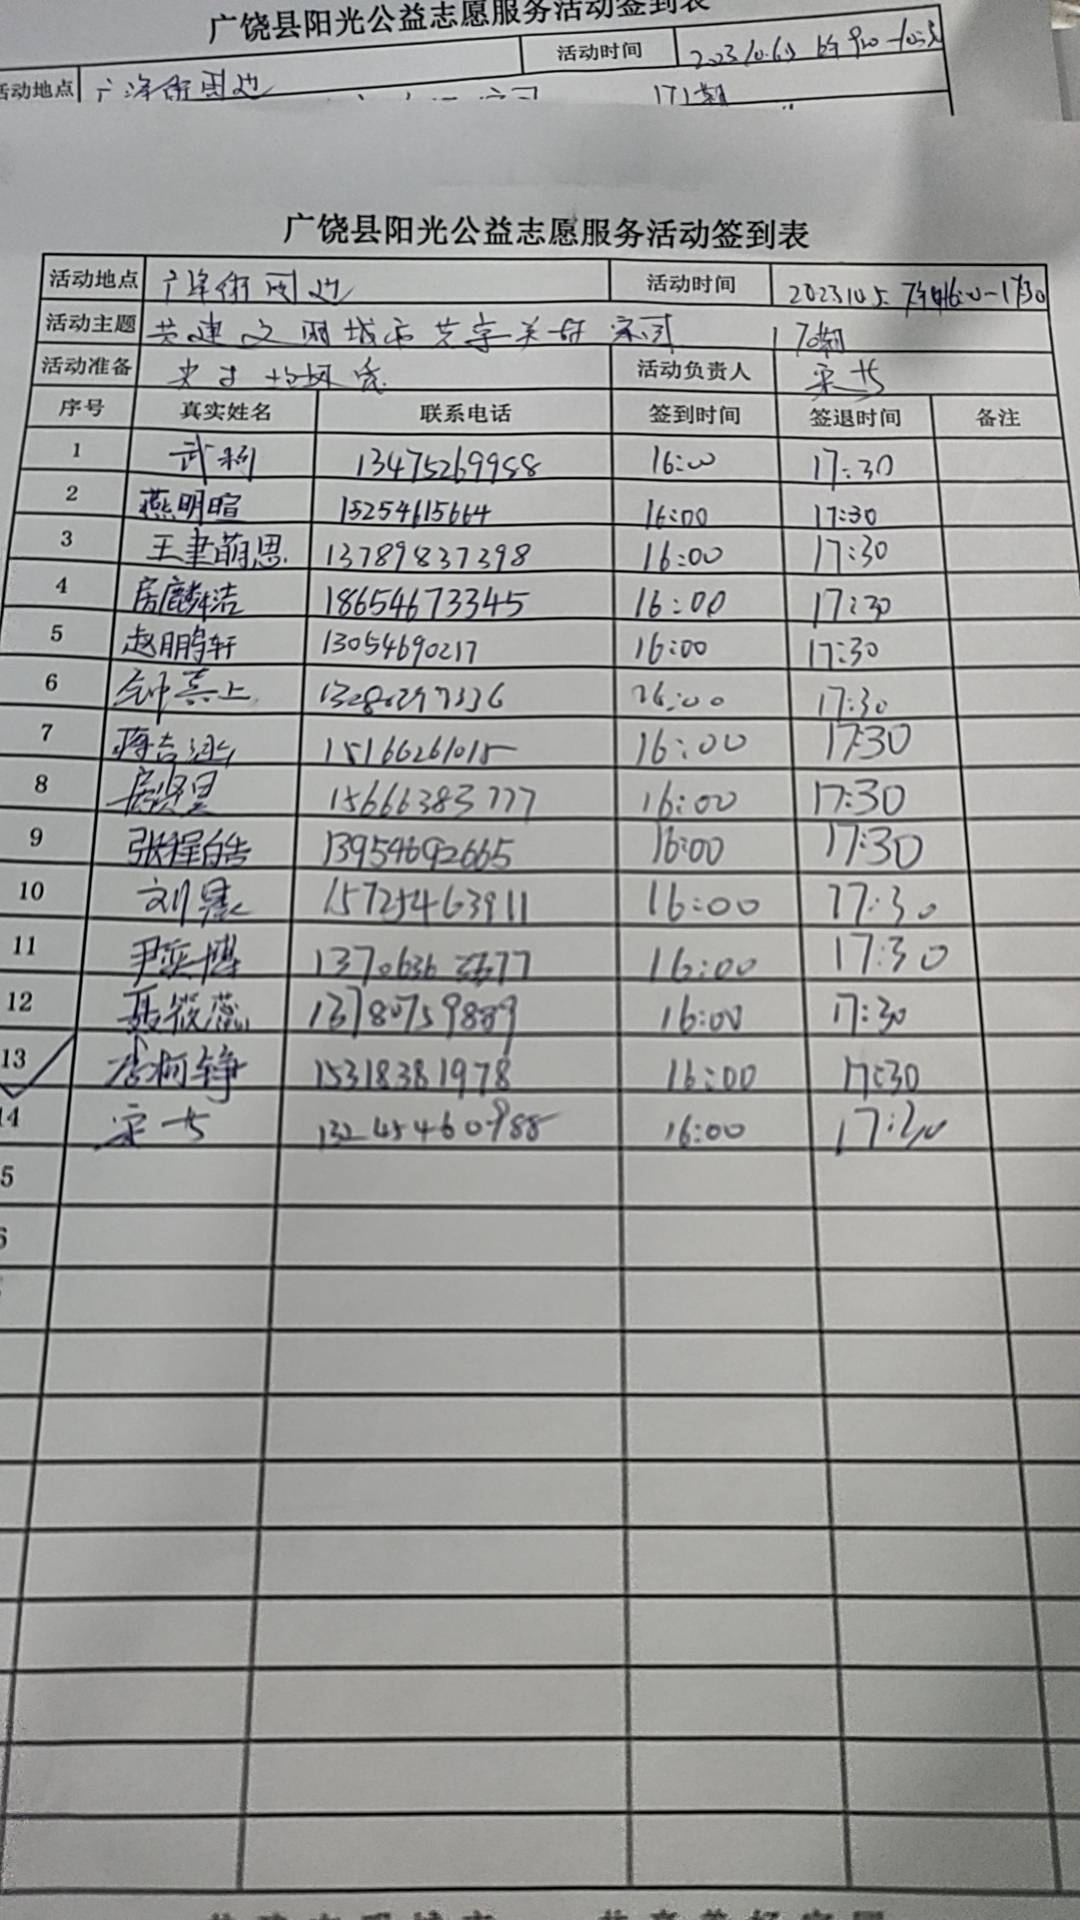 广饶县阳光公益志愿服务活动签到表
活动时间 2023.10.6日
活动地点 广泽街周边
171期
广饶县阳光公益志愿服务活动签到表
活动地点 广泽街周边 活动时间 2023 10.5. 下午16:00-1730
活动主题 共建文明城市 共享美好家园 170期
活动准备 夹子 垃圾袋 活动负责人
序号 真实姓名 联系电话 签到时间 签退时间 备注
1 13475269958 16:00 17:30
2 燕明暄 15254615664 16:00 17:30
3 王聿萌思 13789837398 16:00 17:30
4 房麟洁 18654673345 16:00 17:30
5 赵鹏轩 13054690217 16:00 17:30
6 16:00 17:30
7 蒋吉 15166261015 16:00 17:30
8 15666383777 16:00 17:30
9 张程皓 13954692665 16:00 17:30
10 刘 15725463911 16:00 17:30
11 尹奕博 16:00 17:30
12 聂筱蕊 16:00 17:30
13 李柯铮 15318381978 16:00 17:30
14 13245460988 16:00 17:30
5
6